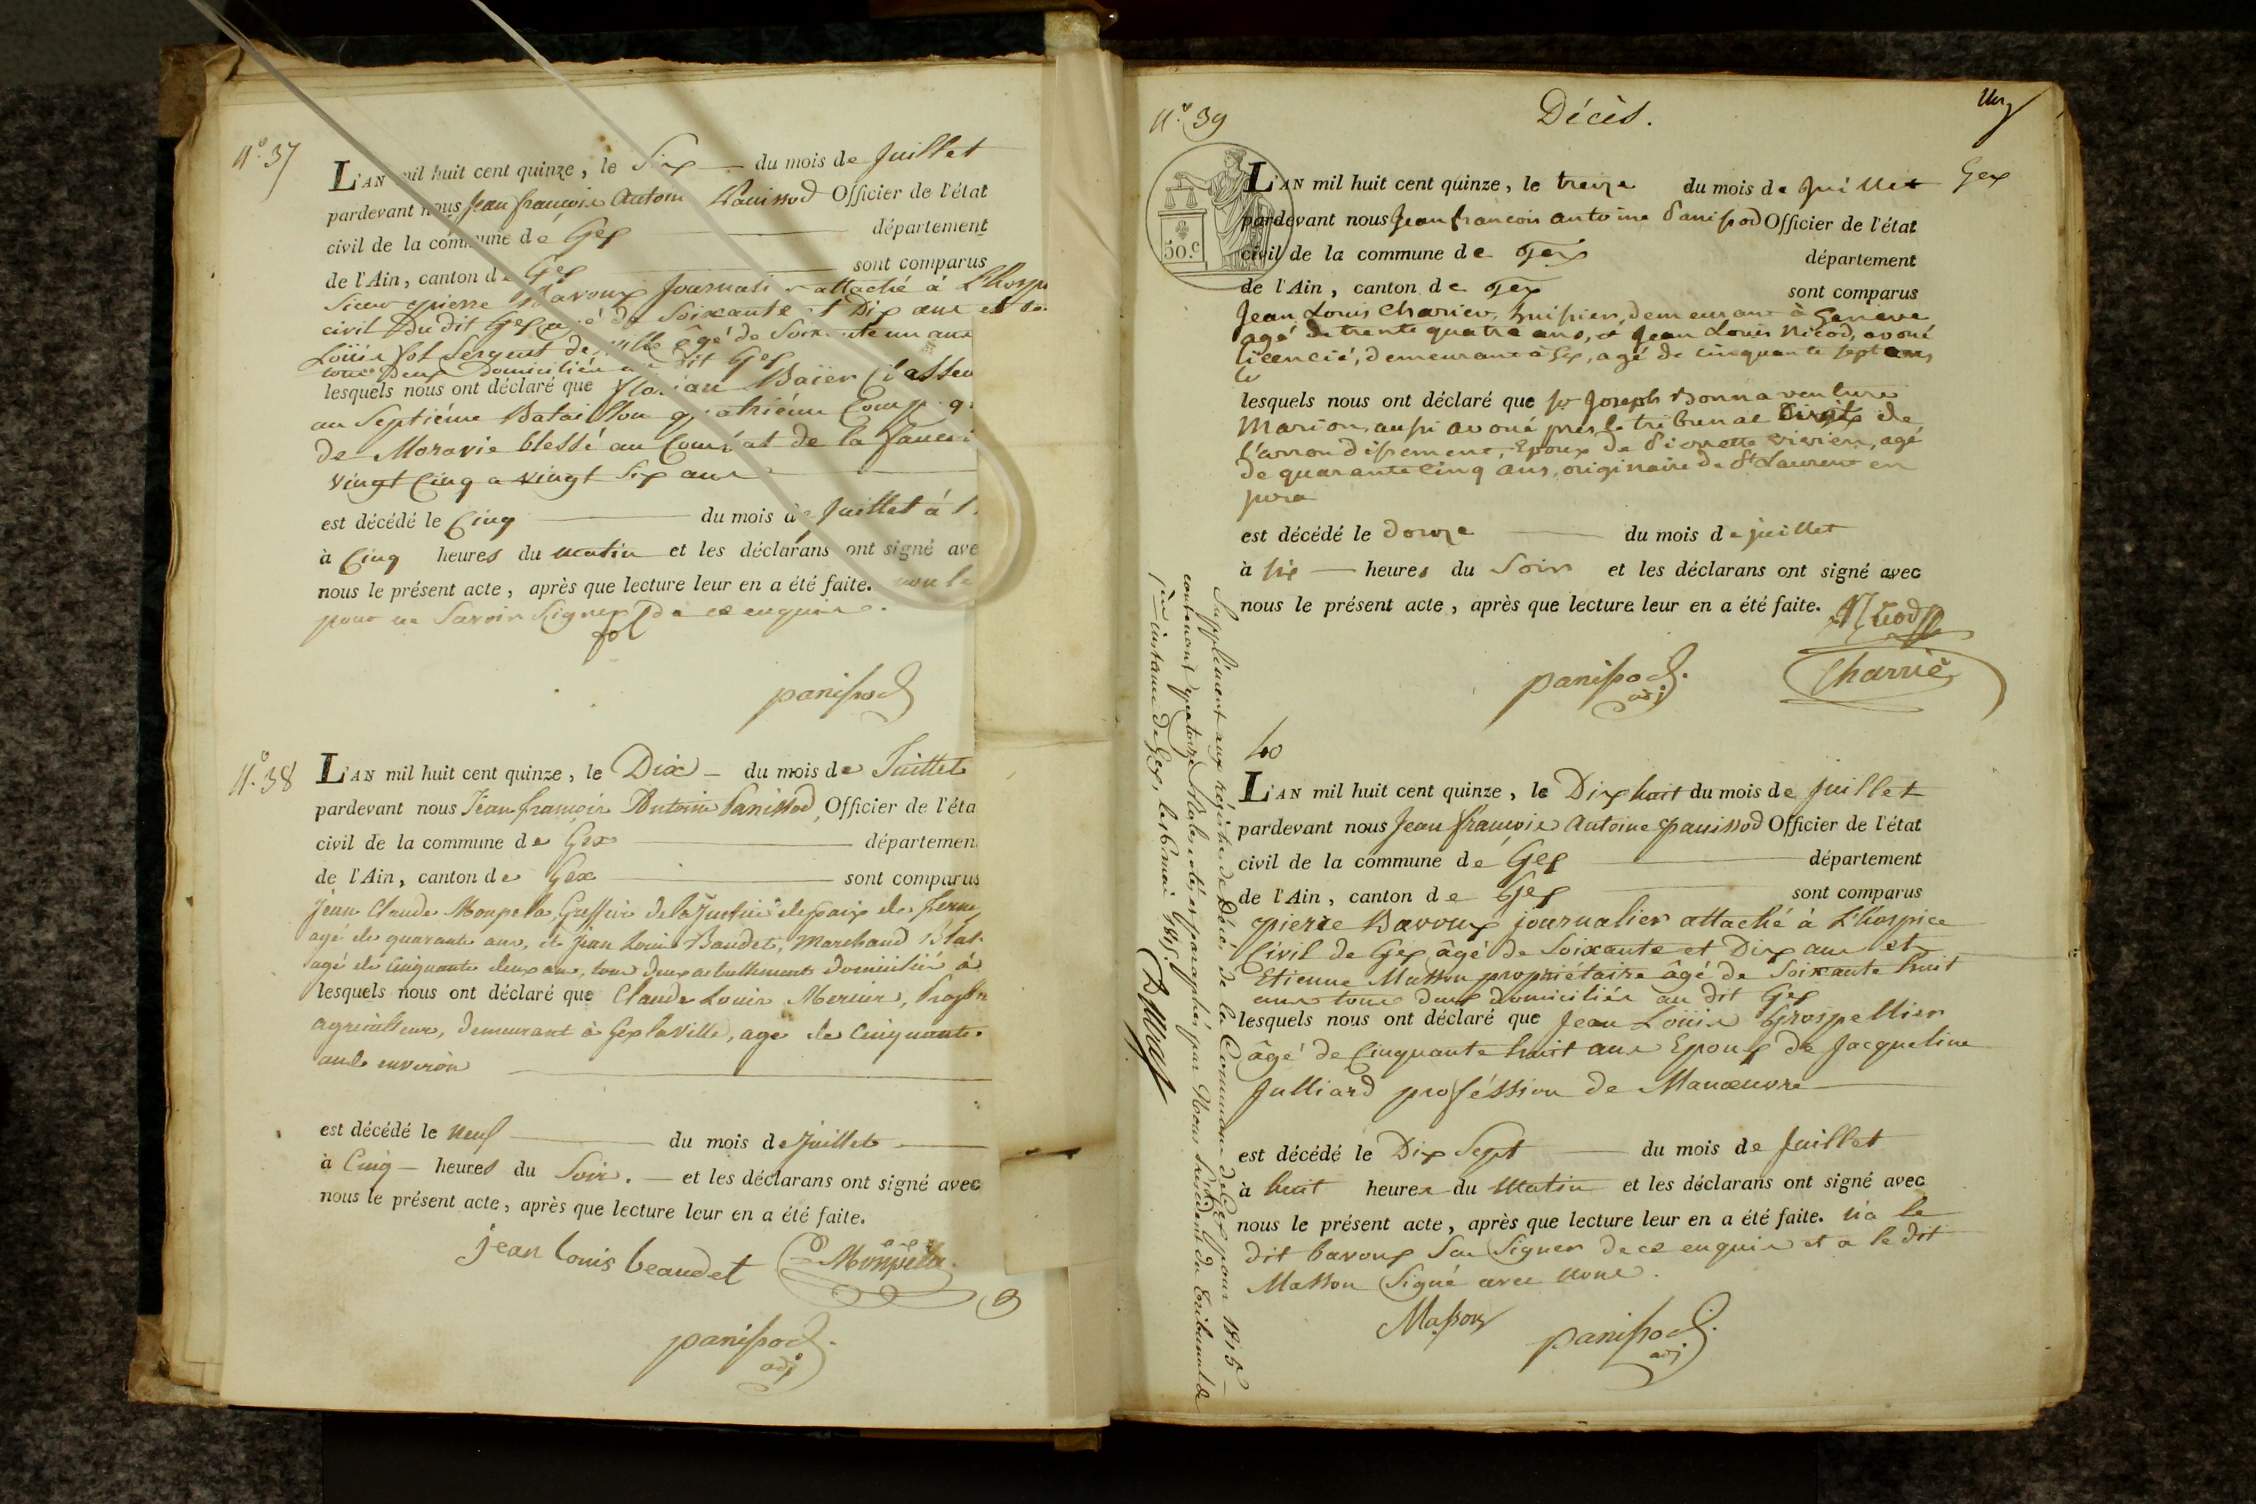 N.° 37
L'AN mil huit cent quinze, le Six du mois de Juillet
pardevant nous Jean françois Antoine Panissod Officier de l'état
civil de la commune de Gex département
de l'Ain, canton de Gex sont comparus
Sieur pierre Bavoux Journalier attaché à L'hospi
civil du dit Gex âgé de Soixante et Dix ans et
Loüis fol Sergent de ville âgé de Soixante un ans
tous Deux Domiciliés au dit Gex
lesquels nous ont déclaré que florian Baïer Chasseur
au Septiéme Bataillon quatriéme Comp
de Moravie blessé au Combat de la faucil
vingt Cinq a vingt Six ans
est décédé le Cinq du mois de Juillet à
à Cinq heures du matin et les déclarans ont signé ave
nous le présent acte, après que lecture leur en a été faite. non le
pour ne Savoir Signer de ce enquis.
fol
panissod
N.° 38
L'AN mil huit cent quinze, le Dix du mois de Juillet
pardevant nous Jean françois Antoine Panissod, Officier de l'éta
civil de la commune de Gex départemen
de l'Ain, canton de Gex sont comparus
Jean Claude Monpela, Greffier de la Justice de paix de ferney
agé de quarante ans, et Jean Louis Baudet, Marchand
agé de Cinquante deux ans, tous deux actuellement domicilié à
lesquels nous ont déclaré que Claude Louis Mercier,
agriculteur, demeurant à Gex la Ville, agé de Cinquante
ans environ
est décédé le neuf du mois de Juillet
à Cinq heures du Soir. et les déclarans ont signé avec
nous le présent acte, après que lecture leur en a été faite.
jean louis beaudet Monpela
panissod
adj
N.° 39
Décès.
Gex
50.c
L'AN mil huit cent quinze, le treize du mois de Juillet
pardevant nous Jean francois antoine Panissod Officier de l'état
civil de la commune de Gex département
de l'Ain, canton de Gex sont comparus
Jean Louis Charier, huissier, demeurant à Genève
agé de trente quatre ans, et Jean Louis Nicod, avoué
licencié, demeurant à Gex, agé de cinquante sept ans
lesquels nous ont déclaré que Sr Joseph Bonnaventure
Marion, aussi avoué près le tribunal Civil de
l'arrondissement, Epoux de Pierrette vivien, agé
de quarante cinq ans, originaire de St Laurent en
jura
est décédé le douze du mois de juillet
à six heures du Soir et les déclarans ont signé avec
nous le présent acte, après que lecture leur en a été faite.
Nicod
panissod. adj
Charrier
40
L'AN mil huit cent quinze, le Dix huit du mois de Juillet
pardevant nous Jean francois Antoine panissod Officier de l'état
civil de la commune de Gex département
de l'Ain, canton de Gex sont comparus
pierre Bavoux journalier attaché à L'hospice
Civil de Gex âgé de Soixante et Dix ans et
Etienne Masson propriétaire âgé de Soixante huit
ans tous deux domiciliés au dit Gex
lesquels nous ont déclaré que Jean Loüis Grospellier
âgé de Cinquante huit ans Epoux de Jacqueline
Julliard proféssion de Manœuvre
est décédé le Dix Sept du mois de Juillet
à huit heures du Matin et les déclarans ont signé avec
nous le présent acte, après que lecture leur en a été faite. n'a le
dit bavoux Su Signer de ce enquis et a le dit
Masson Signé avec nous.
Masson
panissod.
adj
Supplément aux régistres de Décès de la Commune de Gex pour 1815
contenant quatorze f cotés et paraphés par Nous Président du tribunal de
1ère instance de Gex, le 16 mai 1815.